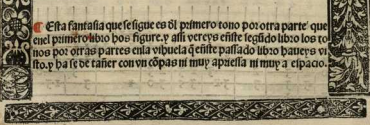 ¶ Esta fantasia que se sigue es dl̄ primero tono por otra parte q̄
enel primero libro hos figure. y assi vereys eñste segūdo libro los to
nos por otras partes enla vihuela q̄ eñste passado libro haueys vi
sto. y ha se de tañer con vn cōpas ni muy apriessa ni muy a espacio.